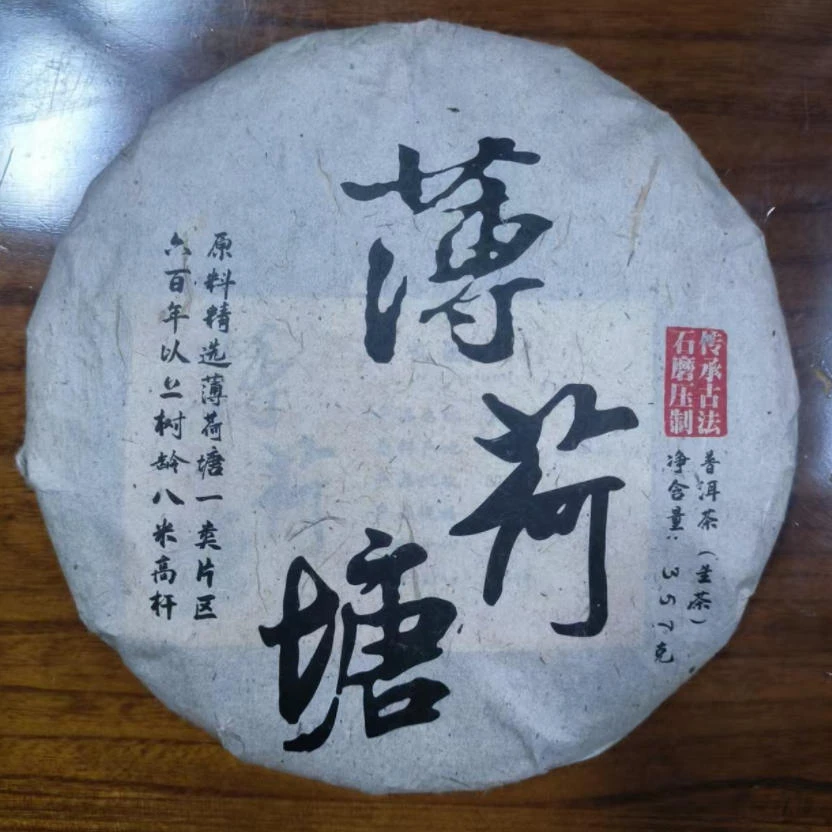 薄荷塘
传承古法
石磨压制
普洱茶(生茶)
净含量:357克
原料精选薄荷塘一类片区
六百年以上树龄八米高杆